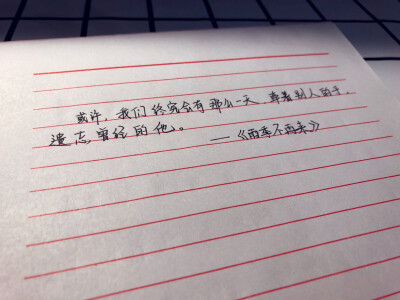 或许，我们终究会有那么一天，牵着别人的手，
遗忘曾经的他。 ——《雨季不再来》